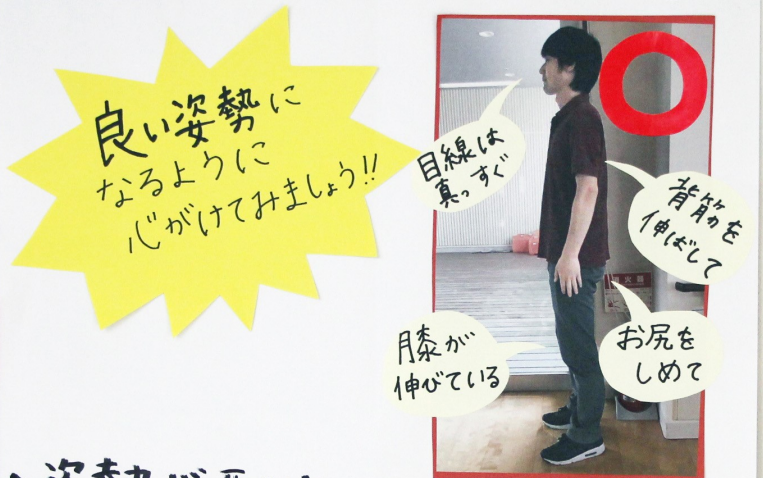 良い姿勢に
なるように
心がけてみましょう!!
目線は
真っすぐ
背筋を
伸ばして
お尻を
しめて
膝が
伸びている